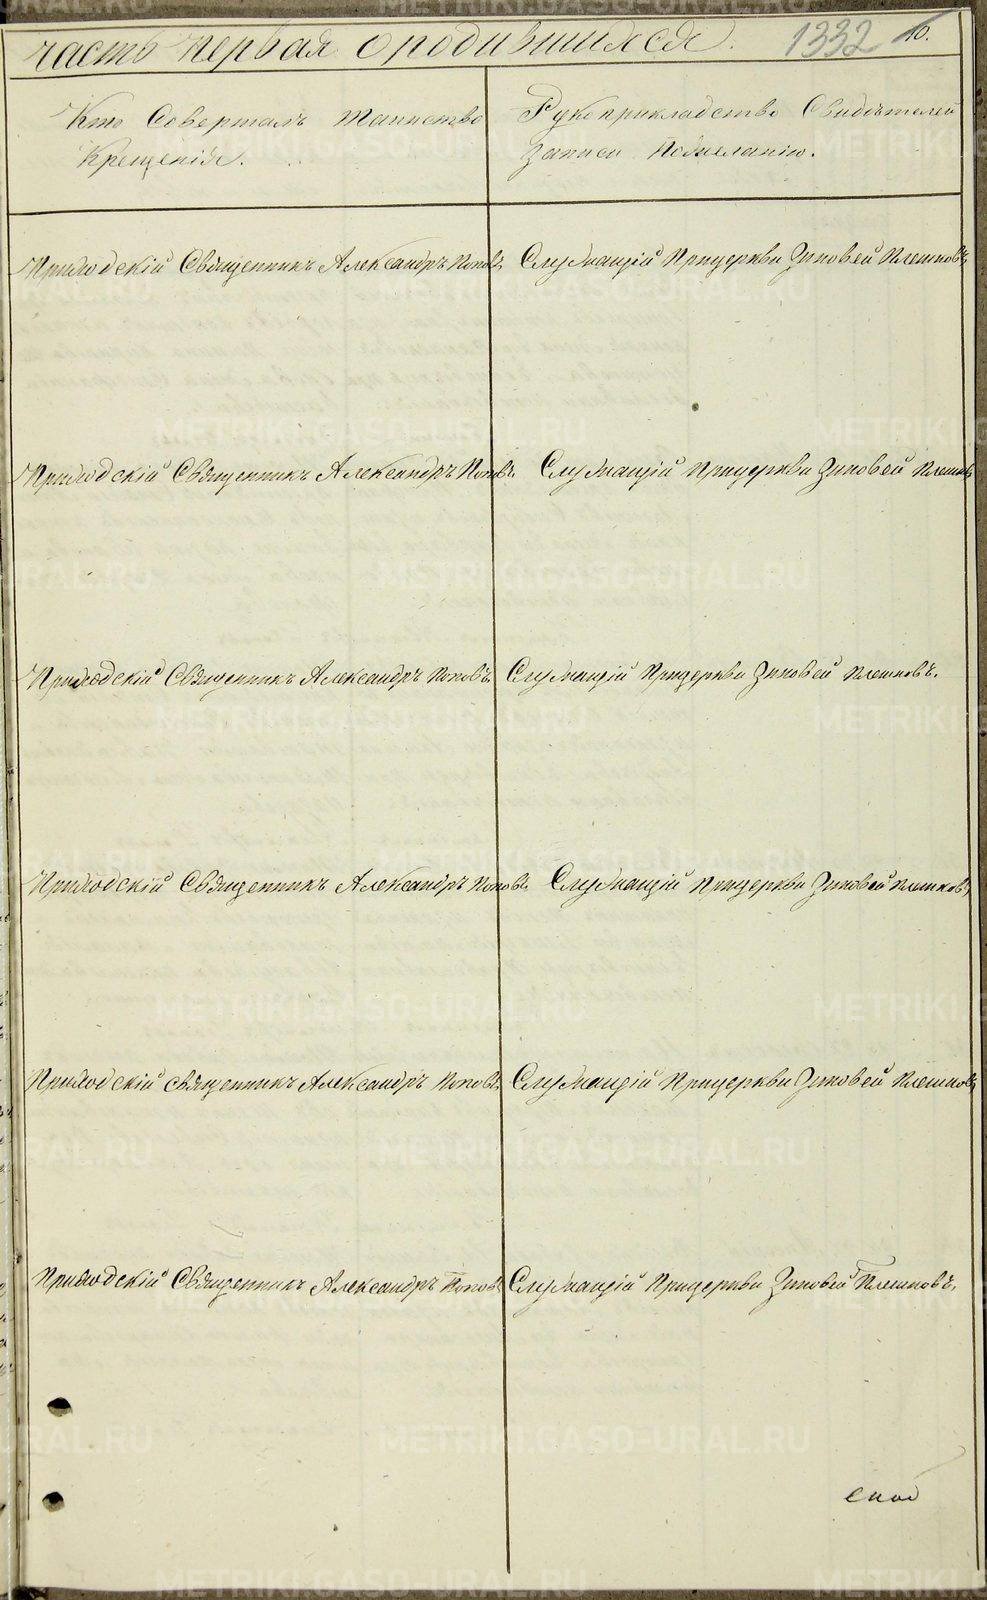 часть первая о родившихся. 1332 10.
Кто Совершалъ таинство
Крещенія.
Рукоприкладство Свидѣтелей
записи по желанію.
Приходскій Священникъ Александръ Поповъ. Служащій Прицеркви Зиновей Плешковъ,
Приходскій Священникъ Александръ Поповъ. Служащій Прицеркви Зиновей Плешковъ
Приходскій Священникъ Александръ Поповъ. Служащій Прицеркви Зиновей Плешковъ.
Приходскій Священникъ Александръ Поповъ. Служащій Прицеркви Зиновей Плешковъ,
Приходскій священникъ Александръ Поповъ. Служащій Прицеркви Зиновей Плешковъ,
Приходскій Священникъ Александръ Поповъ. Служащій Прицеркви Зиновей Плешковъ.
METRIKI.GASO-URAL.RU